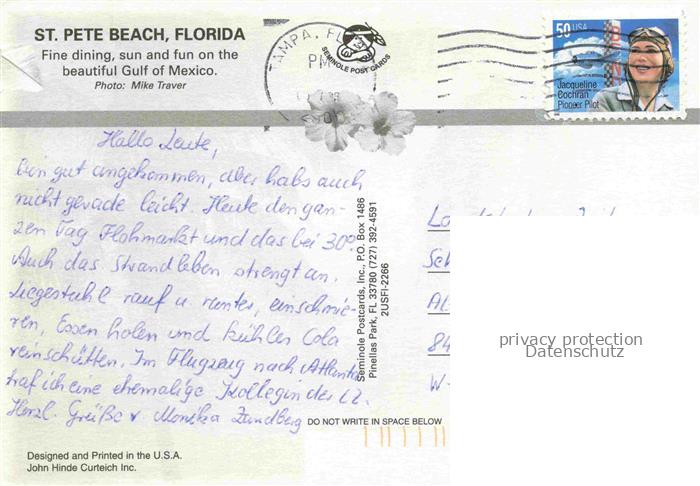 ST. PETE BEACH, FLORIDA
Fine dining, sun and fun on the
beautiful Gulf of Mexico.
Photo: Mike Traver
TAMPA, FL
PM
SEMINOLE POST CARDS
50 USA
Jacqueline
Cochran
Pioneer Pilot
Hallo Leute,
bin gut angekommen, aber habs auch
nicht gerade leicht. Heute den gan-
zen Tag Flohmarkt und das bei 30°.
Auch das Strandleben strengt an.
Liegestuhl rauf u. runter, einschmie-
ren, Essen holen und kühlen Cola
reinschütten. Im Flugzeug nach Atlanta
traf ich eine ehemalige Kollegin der LZ.
Herzl. Grüße v. Monika Zundberg
Seminole Postcards, Inc., P.O. Box 1486
Pinellas Park, FL 33780 (727) 392-4591
2USFI-2266
84
W-
privacy protection
Datenschutz
DO NOT WRITE IN SPACE BELOW
Designed and Printed in the U.S.A.
John Hinde Curteich Inc.